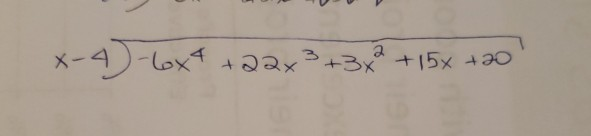 x-4)-6x⁴ +22x³+3x²+15x+20